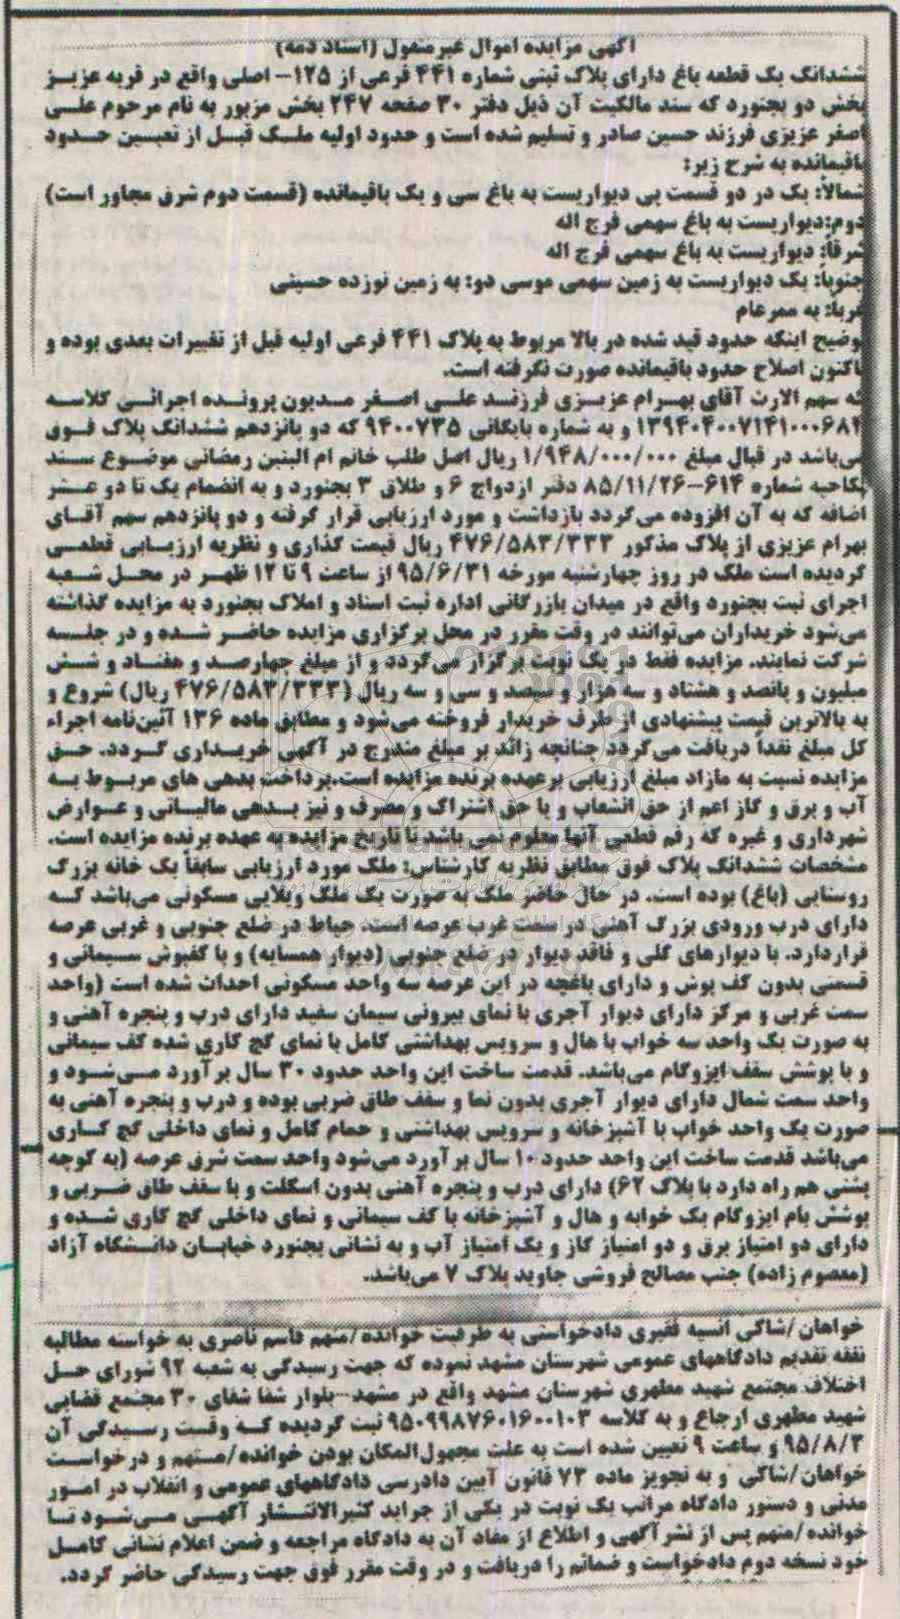 آگهی مزایده اموال غیرمنقول (اسناد ذمه)
ششدانگ یک قطعه باغ دارای پلاک ثبتی شماره ۴۴۱ فرعی از ۱۲۵- اصلی واقع در قریه عزیز
بخش دو بجنورد که سند مالکیت آن ذیل دفتر ۳۰ صفحه ۲۴۷ بخش مزبور به نام مرحوم علی
اصغر عزیزی فرزند حسین صادر و تسلیم شده است و حدود اولیه ملک قبل از تعیین حدود
باقیمانده به شرح زیر:
شمالاً: یک در دو قسمت پی دیواریست به باغ سی و یک باقیمانده (قسمت دوم شرق مجاور است)
دوم:دیواریست به باغ سهمی فرج اله
شرقاً: دیواریست به باغ سهمی فرج اله
جنوباً: یک دیواریست به زمین سهمی موسی دو: به زمین نوزده حسینی
غرباً: به ممرعام
توضیح اینکه حدود قید شده در بالا مربوط به پلاک ۴۴۱ فرعی اولیه قبل از تغییرات بعدی بوده و
تاکنون اصلاح حدود باقیمانده صورت نگرفته است.
که سهم الارث آقای بهرام عزیزی فرزند علی اصغر مدیون پرونده اجرائی کلاسه
۱۳۹۴۰۴۰۰۷۱۴۱۰۰۰۶۸۲ و به شماره بایگانی ۹۴۰۰۷۳۵ که دو پانزدهم ششدانگ پلاک فوق
می‌باشد در قبال مبلغ ۱/۹۴۸/۰۰۰/۰۰۰ ریال اصل طلب خانم ام البنین رمضانی موضوع سند
نکاحیه شماره ۶۱۴-۸۵/۱۱/۲۶ دفتر ازدواج ۶ و طلاق ۳ بجنورد و به انضمام یک تا دو عشر
اضافه که به آن افزوده می‌گردد بازداشت و مورد ارزیابی قرار گرفته و دو پانزدهم سهم آقای
بهرام عزیزی از پلاک مذکور ۴۷۶/۵۸۳/۳۳۳ ریال قیمت گذاری و نظریه ارزیابی قطعی
گردیده است ملک در روز چهارشنبه مورخه ۹۵/۶/۳۱ از ساعت ۹ تا ۱۲ ظهر در محل شعبه
اجرای ثبت بجنورد واقع در میدان بازرگانی اداره ثبت اسناد و املاک بجنورد به مزایده گذاشته
می‌شود خریداران می‌توانند در وقت مقرر در محل برگزاری مزایده حاضر شده و در جلسه
شرکت نمایند. مزایده فقط در یک نوبت برگزار می‌گردد و از مبلغ چهارصد و هفتاد و شش
میلیون و پانصد و هشتاد و سه هزار و سیصد و سی و سه ریال (۴۷۶/۵۸۳/۳۳۳ ریال) شروع و
به بالاترین قیمت پیشنهادی از طرف خریدار فروخته می‌شود و مطابق ماده ۱۳۶ آئین‌نامه اجراء
کل مبلغ نقداً دریافت می‌گردد چنانچه زائد بر مبلغ مندرج در آگهی خریداری گردد. حق
مزایده نسبت به مازاد مبلغ ارزیابی برعهده برنده مزایده است.پرداخت بدهی های مربوط به
آب و برق و گاز اعم از حق انشعاب و یا حق اشتراک و مصرف و نیز بدهی مالیاتی و عوارض
شهرداری و غیره که رقم قطعی آنها معلوم نمی‌باشد تا تاریخ مزایده به عهده برنده مزایده است.
مشخصات ششدانگ پلاک فوق مطابق نظریه کارشناس: ملک مورد ارزیابی سابقاً یک خانه بزرگ
روستایی (باغ) بوده است. در حال حاضر ملک به صورت یک ملک ویلایی مسکونی می‌باشد که
دارای درب ورودی بزرگ آهنی در سمت غرب عرصه است. حیاط در ضلع جنوبی و غربی عرصه
قراردارد. با دیوارهای گلی و فاقد دیوار در ضلع جنوبی (دیوار همسایه) و با کفپوش سیمانی و
قسمتی بدون کف پوش و دارای باغچه در این عرصه سه واحد مسکونی احداث شده است (واحد
سمت غربی و مرکز دارای دیوار آجری با نمای بیرونی سیمان سفید دارای درب و پنجره آهنی و
به صورت یک واحد سه خواب با هال و سرویس بهداشتی کامل با نمای گچ کاری شده کف سیمانی
و با پوشش سقف ایزوگام می‌باشد. قدمت ساخت این واحد حدود ۳۰ سال برآورد می‌شود و
واحد سمت شمال دارای دیوار آجری بدون نما و سقف طاق ضربی بوده و درب و پنجره آهنی به
صورت یک واحد خواب با آشپزخانه و سرویس بهداشتی و حمام کامل و نمای داخلی گچ کاری
می‌باشد قدمت ساخت این واحد حدود ۱۰ سال برآورد می‌شود واحد سمت شرق عرصه (به کوچه
پشتی هم راه دارد با پلاک ۶۲) دارای درب و پنجره آهنی بدون اسکلت و با سقف طاق ضربی و
پوشش بام ایزوگام یک خوابه و هال و آشپزخانه با کف سیمانی و نمای داخلی گچ کاری شده و
دارای دو امتیاز برق و دو امتیاز گاز و یک امتیاز آب و به نشانی بجنورد خیابان دانشگاه آزاد
(معصوم زاده) جنب مصالح فروشی جاوید پلاک ۷ می‌باشد.
خواهان/شاکی انسیه فقیری دادخواستی به طرفیت خوانده/متهم قاسم ناصری به خواسته مطالبه
نفقه تقدیم دادگاههای عمومی شهرستان مشهد نموده که جهت رسیدگی به شعبه ۹۲ شورای حل
اختلاف مجتمع شهید مطهری شهرستان مشهد واقع در مشهد-بلوار شفا شفای ۳۰ مجتمع قضایی
شهید مطهری ارجاع و به کلاسه ۹۵۰۹۹۸۷۶۰۱۶۰۰۱۰۳ ثبت گردیده که وقت رسیدگی آن
۹۵/۸/۳ و ساعت ۹ تعیین شده است به علت مجهول‌المکان بودن خوانده/متهم و درخواست
خواهان/شاکی و به تجویز ماده ۷۳ قانون آیین دادرسی دادگاههای عمومی و انقلاب در امور
مدنی و دستور دادگاه مراتب یک نوبت در یکی از جراید کثیرالانتشار آگهی می‌شود تا
خوانده/متهم پس از نشر آگهی و اطلاع از مفاد آن به دادگاه مراجعه و ضمن اعلام نشانی کامل
خود نسخه دوم دادخواست و ضمائم را دریافت و در وقت مقرر فوق جهت رسیدگی حاضر گردد.